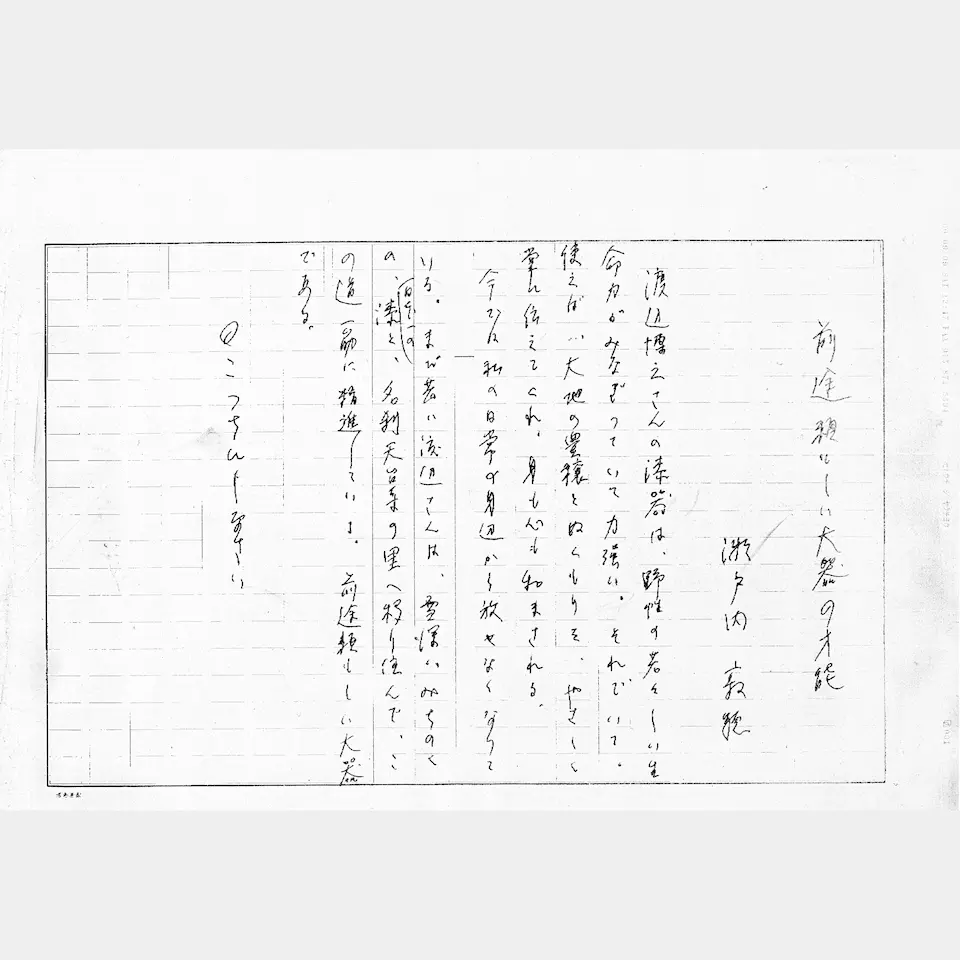 前途頼もしい大器の才能
瀬戸内寂聴
渡辺博之さんの漆器は、野性の若々しい生
命力がみなぎっていて力強い。それでいて、
使えば、大地の豊穣とぬくもりを、やさしく
掌に伝えてくれ、身も心も和まされる。
今では私の日常の身辺から放せなくなって
いる。まだ若い渡辺さんは、雪深いみちのく
の、漆と、名刹天台寺の里へ移り住んで、こ
の道一筋に精進している。前途頼もしい大器
である。